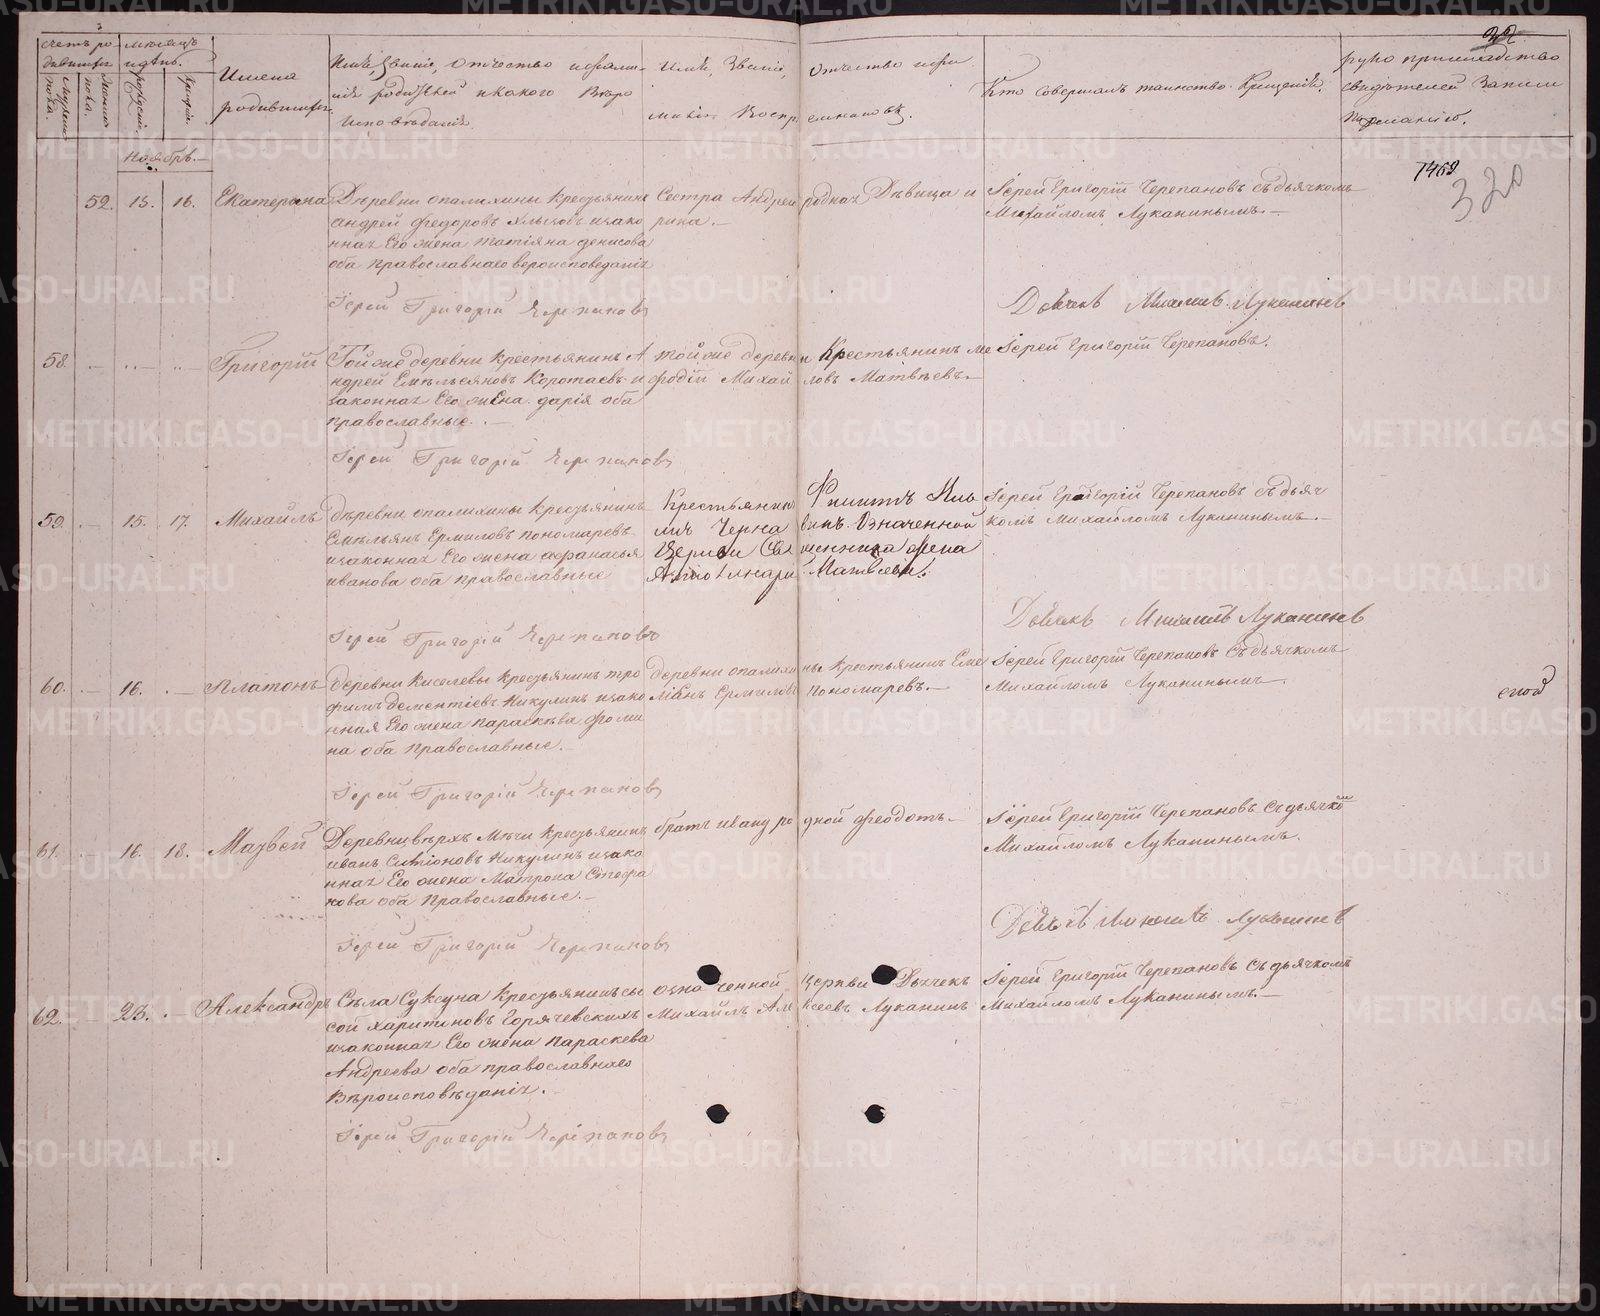 22
счетъ ро-
дившихся
мѣсяцъ
и день.
Мужеска
пола.
Женска
пола.
рожденія
крещенія
Имена
родившихся
Имя, Званіе, Отчество и фами-
лія родителей и какого Вѣро
Исповѣданія
Имя, Званіе, Отчество и фа
милія Воспріемниковъ.
Кто совершалъ таинство Крещенія.
руко прикладство
свидѣтелей Записи
по желанію.
Ноябрь.
1468
320
52. 15. 16. Екатерина
Деревни опалихины Крестьянинъ
андрей федоровъ Хлызовъ и зако
нная Его жена татіяна денисова
оба православнаго вероисповеданія
Сестра Андрея родная Девица и
рика.
Іерей Григорій Черепановъ съ дьячкомъ
Михайломъ Луканинымъ.
Іерей Григорій Черепановъ
Дьячекъ Михаилъ Луканинъ
58. Григорій
Той же деревни Крестьянинъ А
ндрей Емельяновъ Коротаевъ и
законная Его жена дарія оба
православные.
той же деревни Крестьянинъ ме
фодій Михайловъ Матвѣевъ.
Іерей Григорій Черепановъ.
Іерей Григорій Черепановъ
59. 15. 17. Михаилъ
деревни опалихины Крестьянинъ
Емельянъ Ермиловъ пономаревъ
и законная Его жена афанасья
иванова оба православные
Крестьянинъ Филиппъ Иль
инъ Означенной
Церкви Священника жена
Матвѣева.
Іерей Григорій Черепановъ съ дьяч
комъ Михайломъ Луканинымъ.
Іерей Григорій Черепановъ
Дьячекъ Михаилъ Луканинъ
60. 16. Платонъ
деревни Киселевы Крестьянинъ тро
фимъ дементіевъ Никулинъ и зако
нная Его жена параскева фоми
на оба православные.
деревни опалихины Крестьянинъ Еме
ліянъ Ермиловъ Пономаревъ.
Іерей Григорій Черепановъ съ дьячкомъ
Михайломъ Луканинымъ
Іерей Григорій Черепановъ
61. 16. 18. Матвей
Деревни верхъ Крестьянинъ
иванъ Симіоновъ Никулинъ и зако
нная Его жена Матрона Стефа
нова оба православные.
братъ ивану родной феодотъ.
Іерей Григорій Черепановъ съ дьячко
Михайломъ Луканинымъ.
Іерей Григорій Черепановъ
Дьячекъ Михаилъ Луканинъ
62. 23. Александръ
Села Суксуна Крестьянинъ сы
сой харитоновъ Горячевскихъ
и законная Его жена параскева
Андреева оба православнаго
Вероисповеданія.
означенной церкви Дьячекъ
Михайлъ Алексеевъ Луканинъ
Іерей Григорій Черепановъ съ дьячкомъ
Михайломъ Луканинымъ.
Іерей Григорій Черепановъ
METRIKI.GASO-URAL.RU